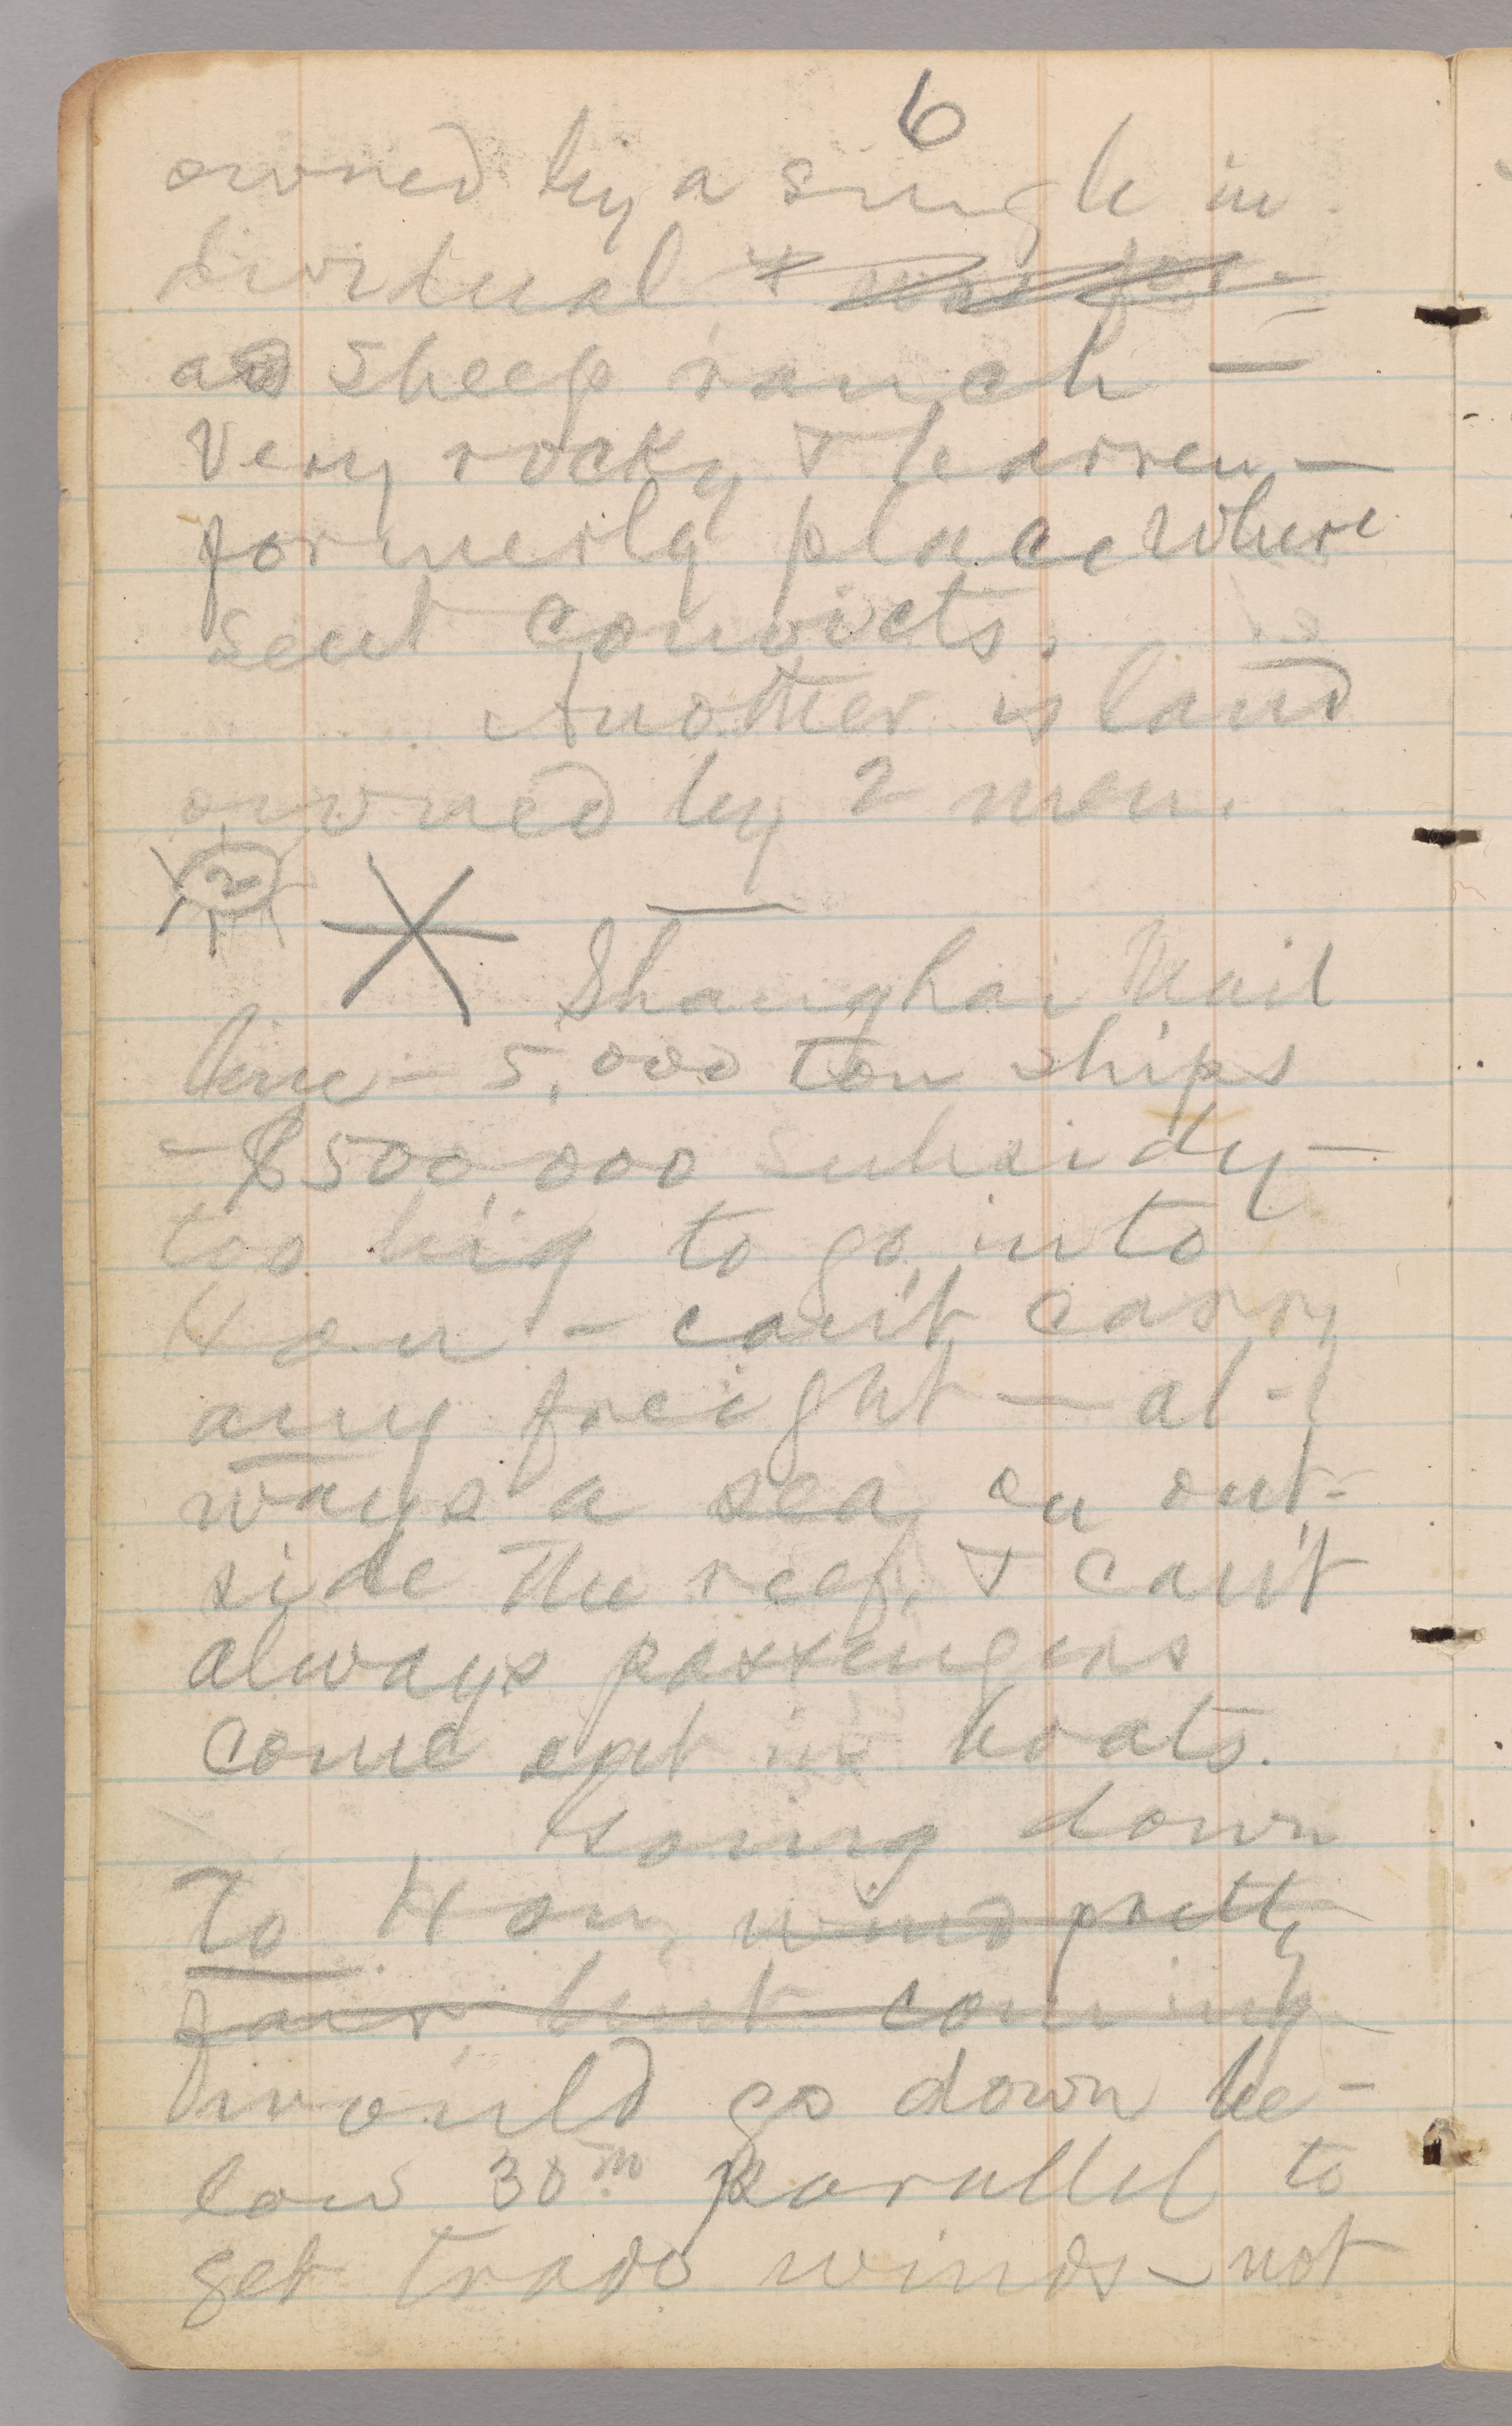 6
owned by a single in
dividual & was for-
as sheep ranch —
Very rocky & barren —
formerly place where
sent convicts.
Another island
owned by 2 men.
2
Shanghai Mail
line — 5,000 ton ships
— $500,000 subsidy —
too big to go into
Hon — can't carry
any freight — al-
ways a sea on out-
side the reef, & can't
always passengers
come out in boats.
Going down
To Hon, wind pretty
fair, but coming
would go down be-
low 30th parallel to
get trade winds — not